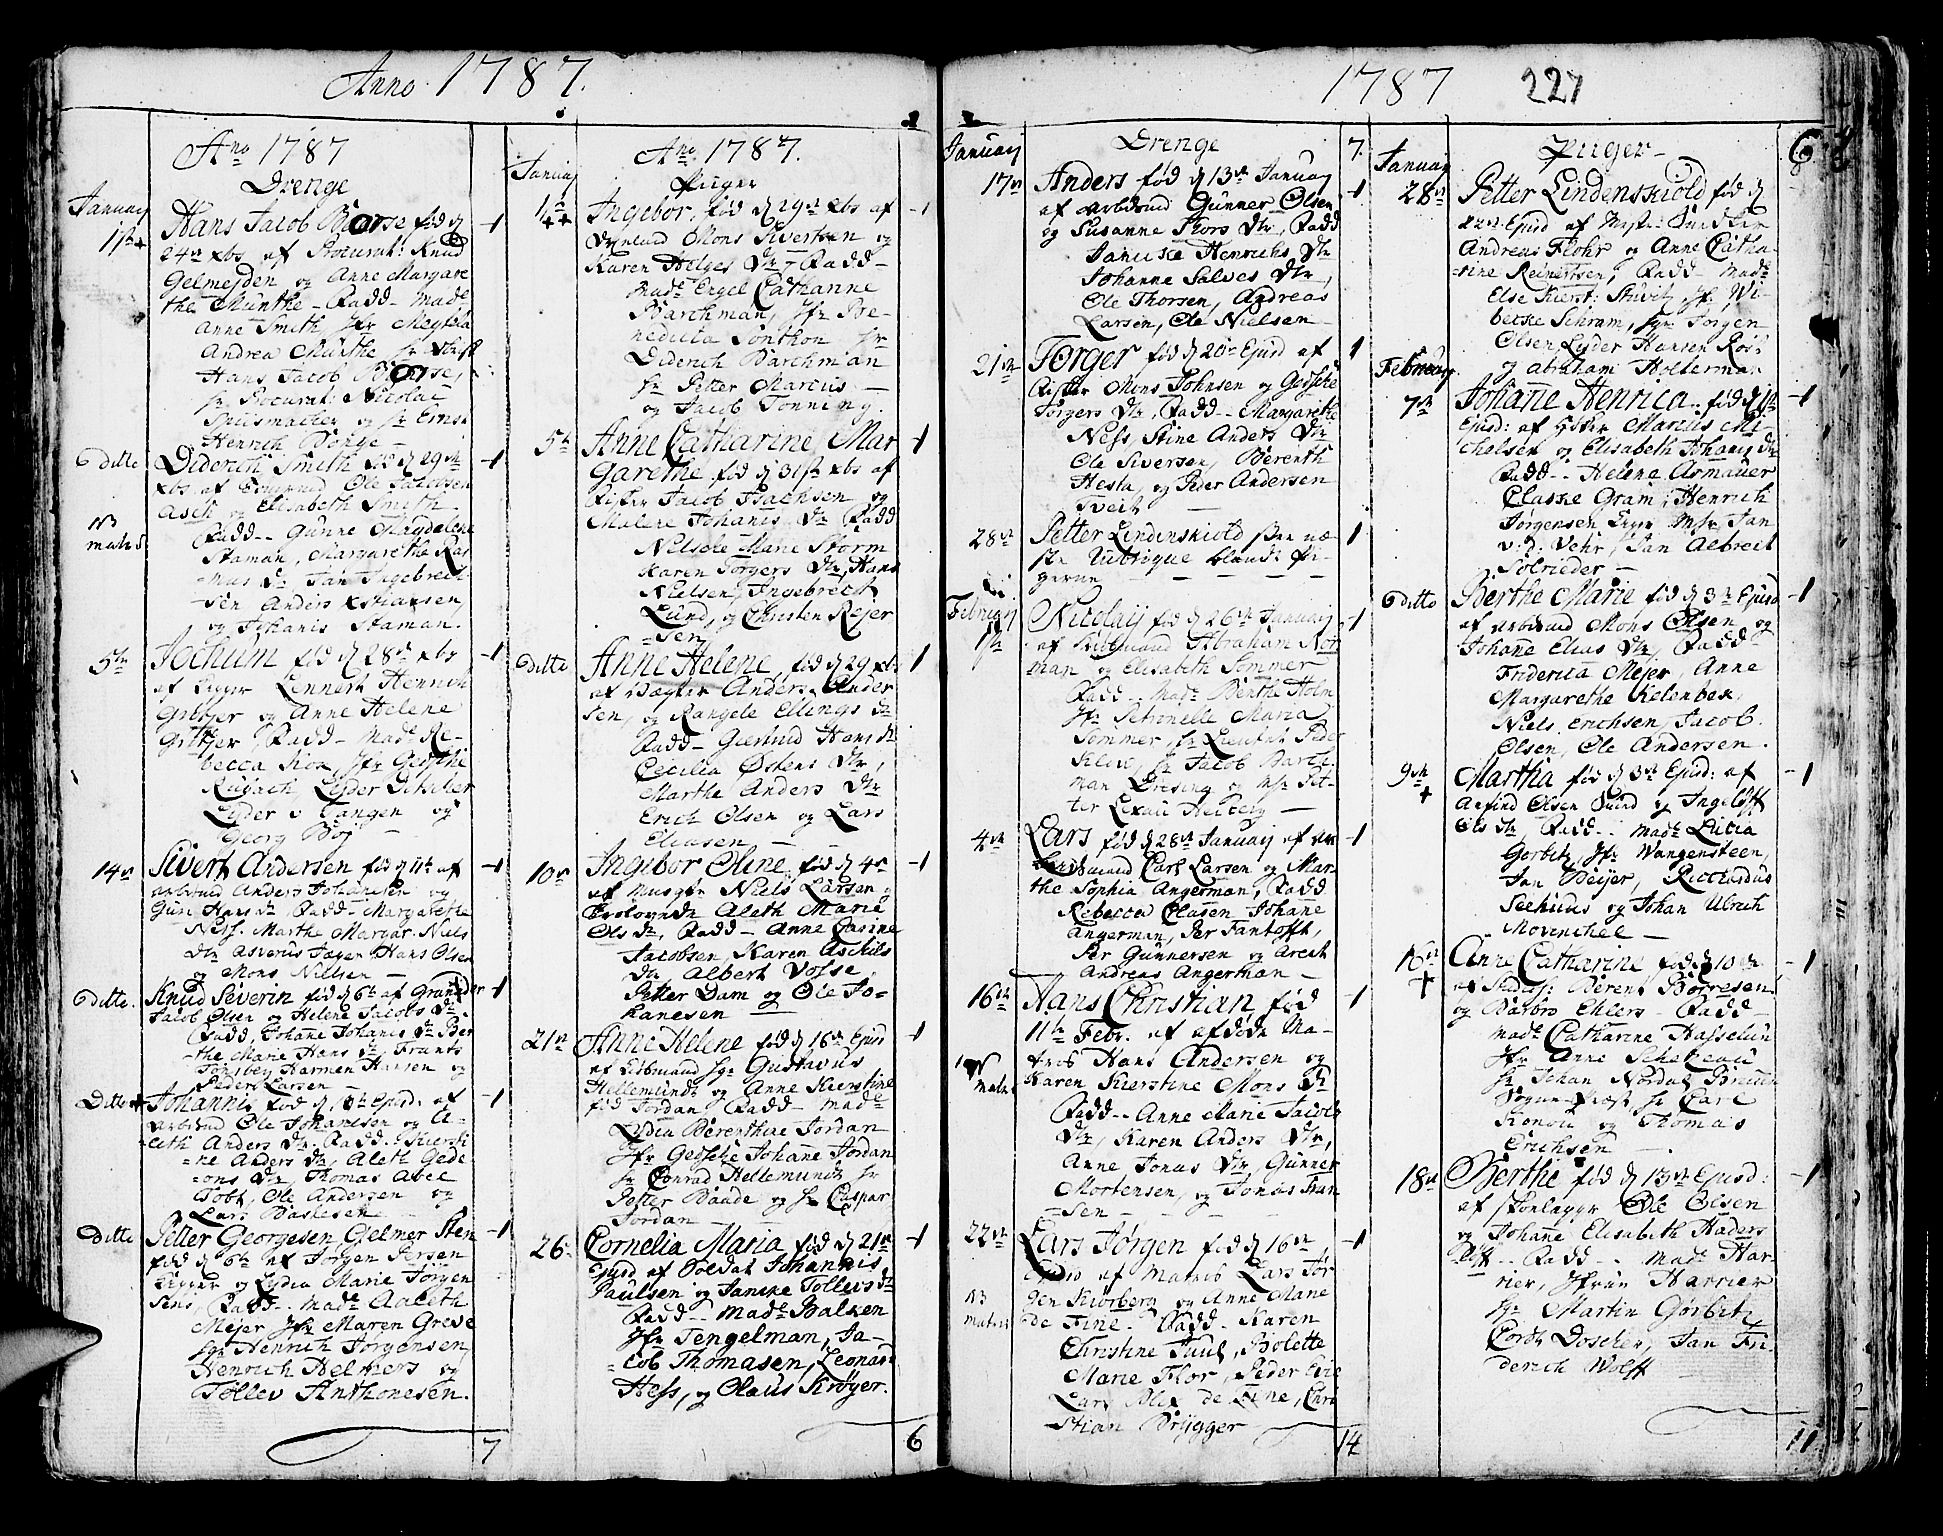 Anno 1787.
Ano 1787
Drenge
January
1ste + Hans Jacob Børse fød d
24de xbr af Procurat: Knud
Gelmejden og Anne Margare
the Munthe - Fadd - Made
Anne Smith, Jfr Megtela
Andrea Munthe hr
Hans Jacob Børse,
hr Procurat: Nicolai
Spitsmacher og hr Ernst
Henrich Børge -
6 ditto Diderich Smith fød d 29de -1
xbr af Ole Jacobsen
Asch og Elisabeth Smith
NB Fadd - Gunne Magdelene
Staman, Margarethe Ras
mus Dr Jan Ingebrech
sen Anders Xstiansen,
og Johanis Staman.
5te Jochum fød d 28de xbr -1
af Ligger Lennert Henrich
og Anne Helene
Fadd - Made Re
becca Kox, Jfr Gesche
Lyder
Lyder v Tangen og
Georg Bøj -
14de Sivert Andersen fød d 11te af -1
arbmd Anders Johansen og
Guri Hans dr Fadd - Margarethe
Ness. Marthe Margar. Niels
dr Asverus Jæger Hans Olsen
og Mons Nielsen -
6 ditto. Knud Severin fød d 6te af Granader -1
Jacob Olsen og Helene Jacobs Dr
Fadd, Johane Johanis Dr Ber
the Marie Hans dr Frants
Tønsberg Harmen Hansen og
Peder Larsen -
Ditto + Johannis fød d Ejusd: af -1
arbmd Ole Johannesen og A-
leth Anders Dr. Fadd - Kiersti
ne Anders dr, Aleth Gede-
ons dr, Thomas Abel
Tobt, Ole Andersen og
Lars Baslesen
Ditto Petter Georgesen Gelmer Sten -1
fød d 6te af Jørgen Persen
Ligger og Lydia Marie Jørgen
sens, Fadd - Made Aaleth
Mejer Jfr Maren Greve
hr Henrich Jørgensen,
Henrich Helmers og
Tollev Anthonesen.
7
Ano 1787.
Piger
January
1ste ++ Ingebor, fød d 29de xbr af -1
Mons Sivertsen og
Karen Helges Dr - Fadd -
Made Engel Cathanne
Barchman, Jfr Be-
nedicta Tonthon hr
Diderich Barchman
hr Petter Marcus -
og Jacob Tonning.
5te Anne Catharine Mar -1
Garethe fød d 31te xbr af
Fisker Jacob Isachsen og
Malene Johanis Dr Fadd
Nelsche Marie Storm
Karen Jørgers Dr, Hans
Nielsen, Ingebrech
Lund, og Christen Rejer
sen
ditto Anne Helene, fød d 29 xbr 1
af Vægter Anders Ander
sen, og Rangele Ellings dr
Fadd - Giertrud Hans dr
Cecilia Østens Dr,
Marthe Anders Dr
Erich Olsen og Lars
Eliasen -
10de Ingebor Oline, fød d 4de -1
af Musqtr Niels Larsen og
Aleth Marie
Ols dr, Fadd - Anne Casine
Jacobsen, Karen Aschils
dr, Albert Vosse,
Petter Dam og Ole Jo-
hanesen -
21de Anne Helene fød d 16de Ejusd -1
af hr Gustavus
Hellemundt og Anne Kierstine
fød Jordan Fadd - Made
Lydia Berenthine Jordan
Jfr Gesche Johane Jordan
hr Conrad Hellemundt hr
Petter Baade og hr Caspar
Jordan -
26 Cornelia Maria fød d 21de -1
Ejusd af Soldat Johannis
Paulsen og Janike Tollevs dr
Fadd - Made Balchen
Jfr Tengelman, Ja-
cob Thomasen, Leonard
Hess, og Claus Krøyer.
6
1787 227
Drenge 7.
January
17de Anders fød d 13de January -1
af arbdmd Gunner Olsen
og Susanne Thors Dr, Fadd
Janiske Henrichs Dr
Johanne Salves Dr,
Ole Thorsen, Andreas
Larsen, Ole Nielsen -
21de Jørger fød d 20de Ejusd af 1
Fisker Mons Johnsen og Gesche
Jørgers Dr, Fadd - Margarethe
Ness, Stine Anders Dr
Ole Siversen, Berenth
Hesta, og Peder Andersen
Tveit -
28de Petter Lindenskiold See næ 1
ste Rubrique blandt Pi
gerne -
February
1ste Nicolaij fød d 26de January -1
af Abraham Nor
man og Elisabeth Semmer
Fadd - Made Benthe Holm
Jfr Petronelle Maria
Semmer, hr Lieutnt Peder
hr Jacob Bartl.
man Dresing og Msr Pet-
ter Lexau Heltzig -
4de Lars fød d 28de January af ar -1
beidsmand Carl Larsen og Mar-
the Sophia Angerman, Fadd
Rebecca Clasen Johanne
Angerman, Per Fantofft,
Per Gunnersen og Arent
Andreas Angerman -
16de Hans Christian fød -1
11te Febr. af afdøde Ma-
tros Hans Andersen og
NB Karen Kierstine Mons Dr
Fadd - Anne Marie Jacobs
Dr, Karen Anders Dr,
Anne Jonas Dr, Gunner
Mortensen, og Jonas Fran
sen -
22de Lars Jørgen fød d 16de -1
Ejusd af Matros Lars Jør
NB gen Kiørberg og Anne Marie
de Fine - Fadd - Karen
Christine Juul, Bolette
Marie Flor, Peder
Lars Blix de Fine, Chri
stian Brygger
14
Piger 6
January
28de Petter Lindenskiold fød d
22de Ejusd af
Andreas Flohr og Anne Catha-
rine Reinertsen, Fadd - Made
Else Kierst: Stuvitz, Jfr Wi-
becke Schram, hr Jørgen
Olsen Lyder Hansen Ross
og Abraham Holterman
February
7de Johanne Henrica fød d 1ste -1
Ejusd: af Marcus Mi-
chelsen og Elisabeth Johans Dr
Fadd - Helene Asmauer
Claske Gram, Henrich
Jørgensen Msr Jan
v. d. Vehr, Jan Albrect
Solrieder -
6 ditto Berthe Marie fød d 3de Ejusd -1
af Arbdmd Mons Olsen og
Johane Elias Dr, Fadd -
Friderica Mejer, Anne
Margarethe Kelenbek,
Niels Erichsen, Jacob
Olsen, Ole Andersen.
9de + Martha fød d 3de Ejusd: af -1
Arfind Olsen Lund og Ingeloff
Ols dr, Fadd - Made Lucia
Gørbitz, Jfr Wangensteen,
Jan Beijer, Ricchardus
Seehuus og Johan Ulrich
Movinckel -
16de + Anne Catharine fød d 10de -1
af Berent Børresen
og Barbro Ehlers - Fadd -
Made Catharine Hasselun
Jfr Anne
hr Johan Nordal Bruun
Sogne Præst hr Carl
Konow og Thomas
Erichsen -
18de Berthe fød d 13de Ejusd: -1
af Skonlaggr Ole Olsen
og Johane Elisabeth Haders
dr - Fadd - Made Har-
rier, Jfrun Harrier
hr Martin Gørbitz
Cordt Doscher, Jan Fri
derich Wolff
11